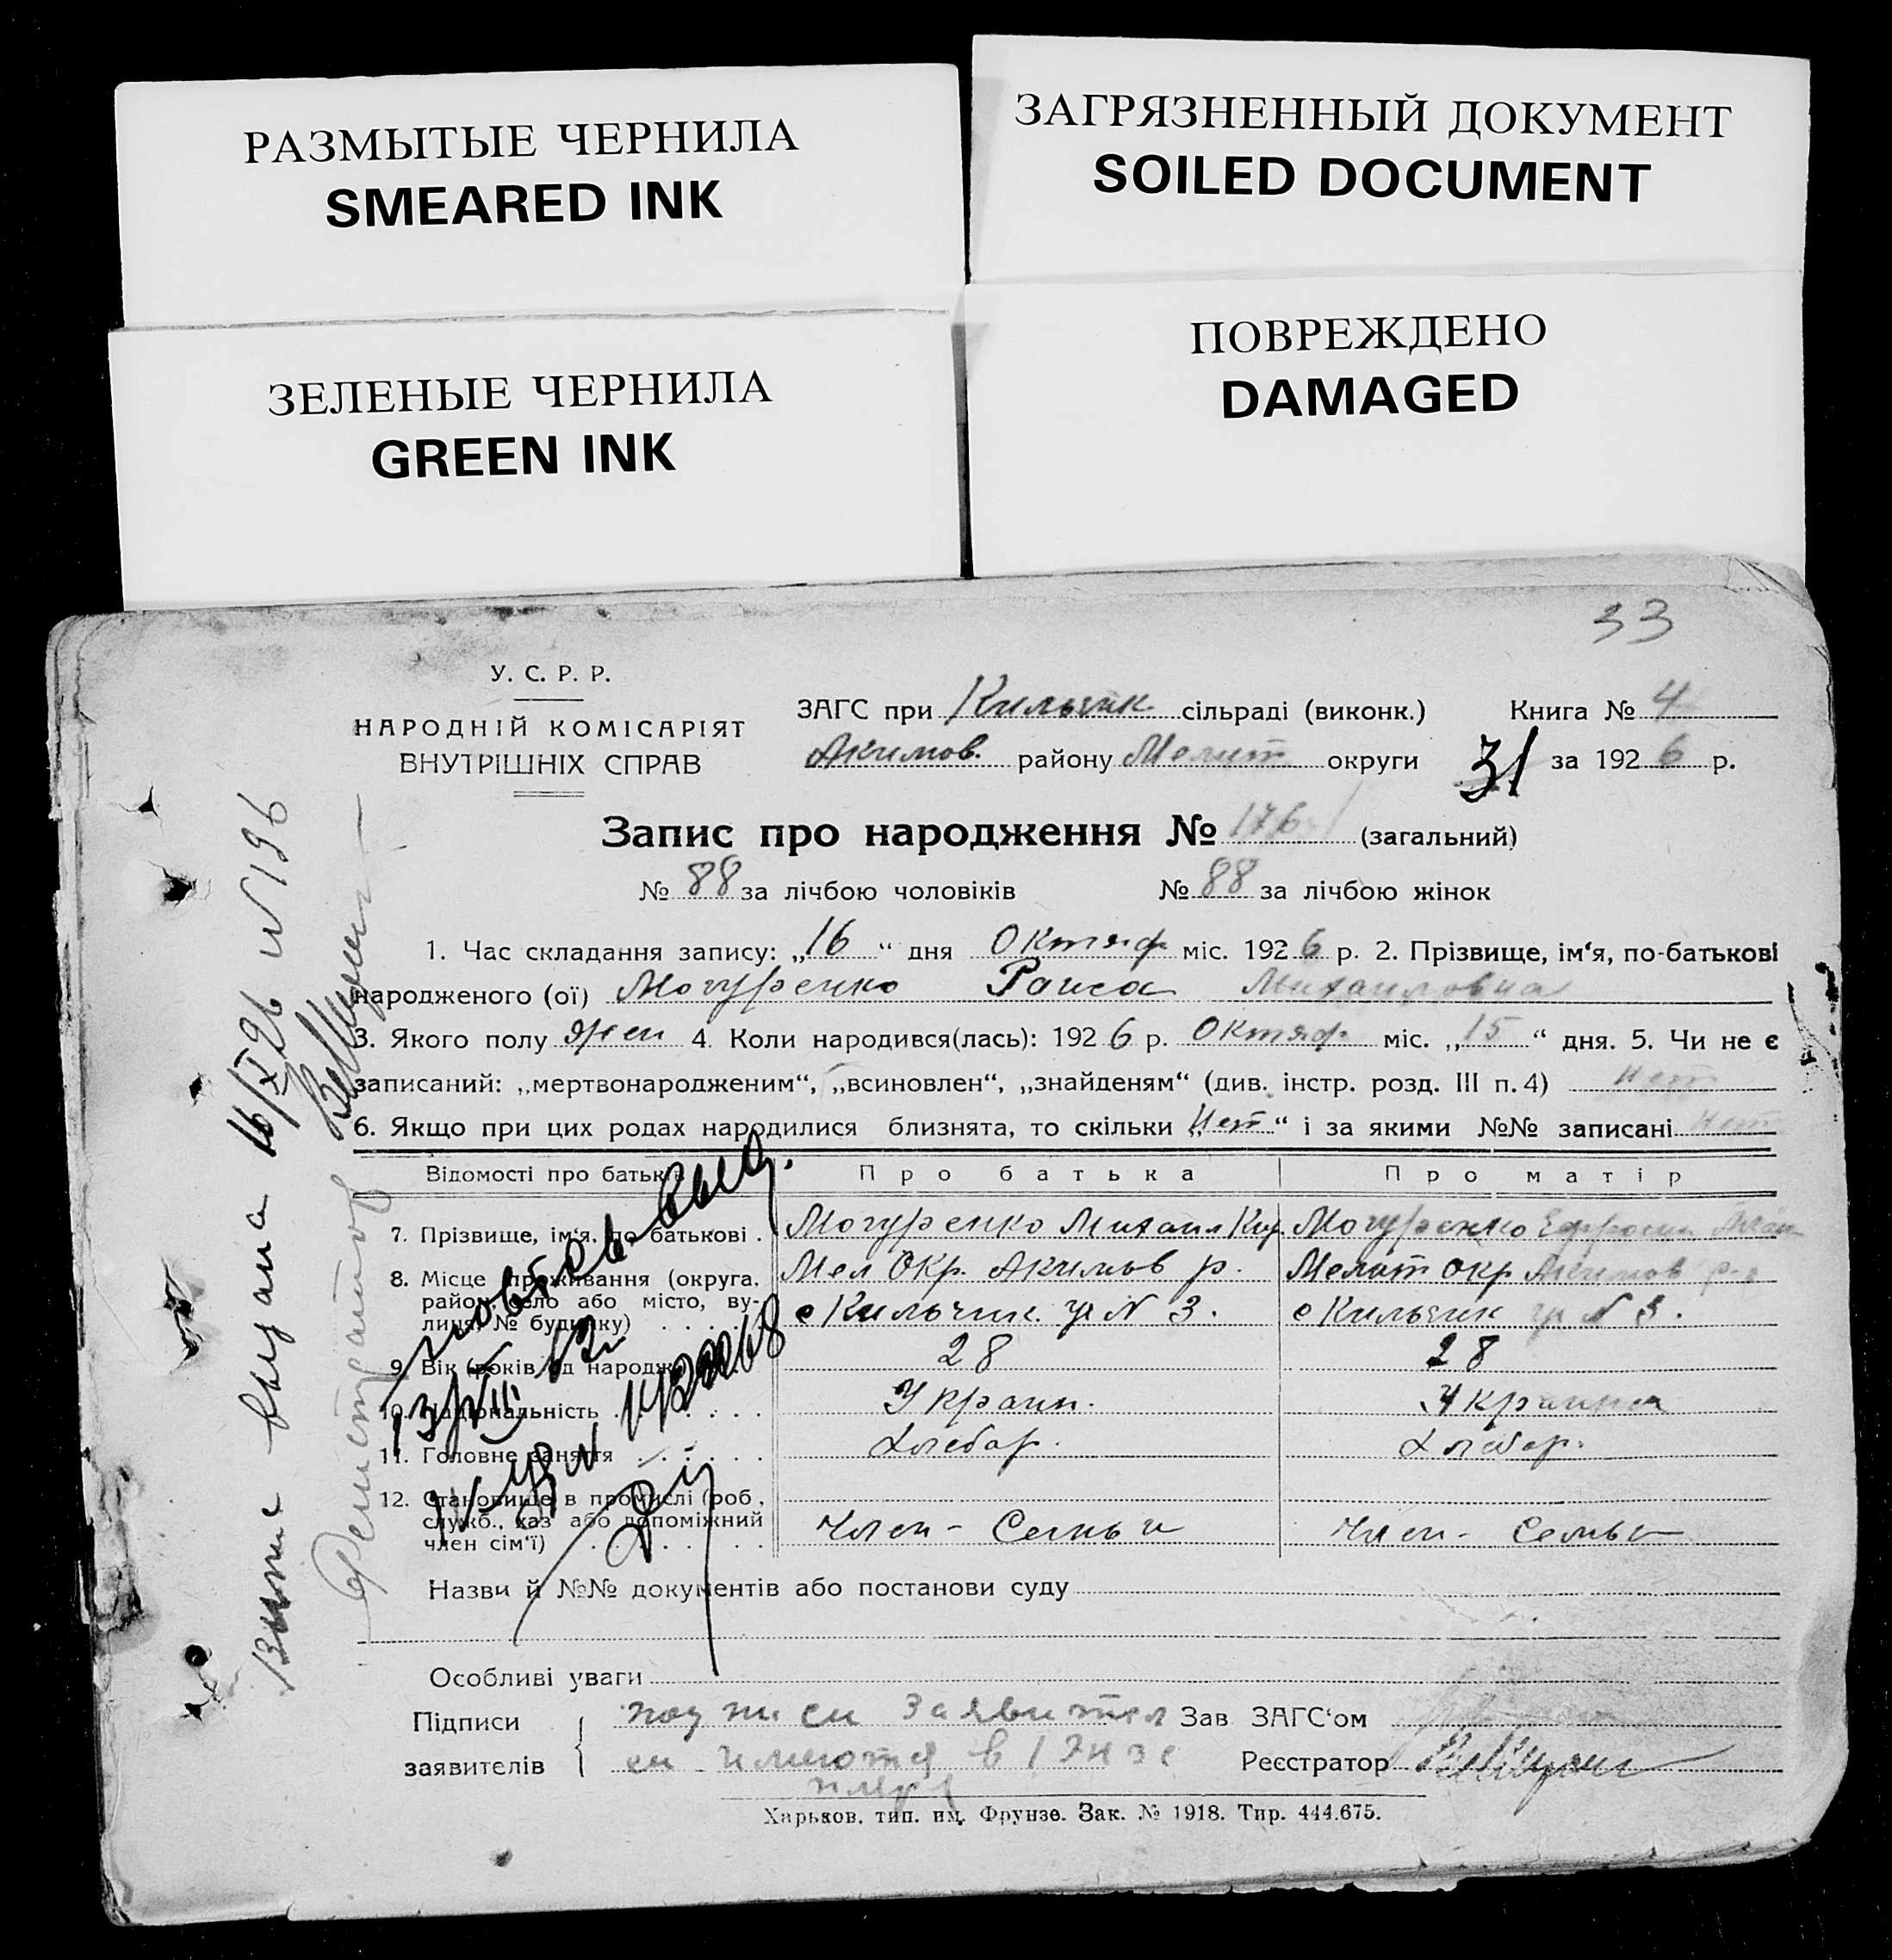 РАЗМЫТЫЕ ЧЕРНИЛА
SMEARED INK
ЗАГРЯЗНЕННЫЙ ДОКУМЕНТ
SOILED DOCUMENT
ЗЕЛЕНЫЕ ЧЕРНИЛА
GREEN INK
ПОВРЕЖДЕНО
DAMAGED
33
У. С. Р. Р.
НАРОДНІЙ КОМІСАРІЯТ
ВНУТРІШНІХ СПРАВ
ЗАГС при Кильчик сільраді (виконк.) Книга № 4
Акимов. району Мелит округи 31 за 1926 р.
Запис про народження № 176 (загальний)
№ 88 за лічбою чоловіків № 88 за лічбою жінок
1. Час складання запису: „16“ дня Октяф міс. 1926 р. 2. Прізвище, ім‘я, по-батькові
народженого (ої) Могуренко Раиса Михаиловна
3. Якого полу жен 4. Коли народився(лась): 1926 р. Октяф міс. „15“ дня. 5. Чи не є
записаний: „мертвонародженим“, „всиновлен“, „знайденям“ (див. інстр. розд. III п. 4) нет
6. Якщо при цих родах народилися близнята, то скільки „Нет“ і за якими №№ записані нет
Відомості про батьків Про батька Про матір
7. Прізвище, ім‘я, по батькові . Могуренко Михаил Могуренко
8. Місце проживання (округа, Мел Окр. Акимов р. Мелит окр Акимов р.
район, село або місто, ву-
лиця, № будинку) с Кильчик N 3. с Кильчик N 3.
9. Вік (років од народж. 28 28
10. Національність Украин. Украинка
11. Головне заняття Хлебор. Хлебор.
12. Становище в промислі (роб.,
служб., хаз або допоміжний Член - Семьи Член - Семьи
член сім‘ї)
Назви й №№ документів або постанови суду
Особливі уваги
Підписи заявителів
подписи заявител
еи имеются в 1 экзе
мпляре
Зав ЗАГС‘ом
Реєстратор
Харьков, тип. им. Фрунзе. Зак. № 1918. Тир. 444.675.
выдана 16/X 26 N 196
Регистратор
повтор. выд.